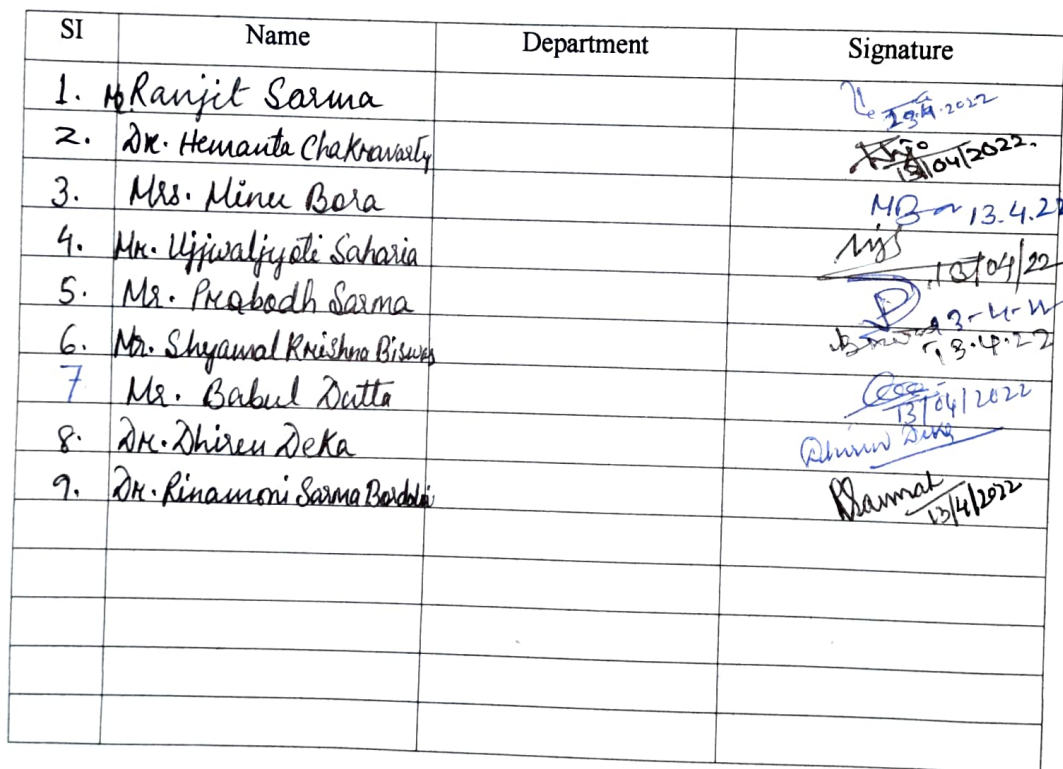 SI Name Department Signature
1. Mr. Ranjit Sarma 13.4.2022
2. Dr. Hemanta Chakravarty 13/04/2022.
3. Mrs. Minu Bora MB 13.4.22
4. Mr. Ujjwaljyoti Saharia 13/04/22
5. Mr. Prabodh Sarma 13-4-22
6. Mr. Shyamal Krishna Biswas 13.4.22
7 Mr. Babul Dutta 13/04/2022
8. Dr. Dhiren Deka Dhiren Deka
9. Dr. Rinamoni Sarma Bordoloi 13/4/2022